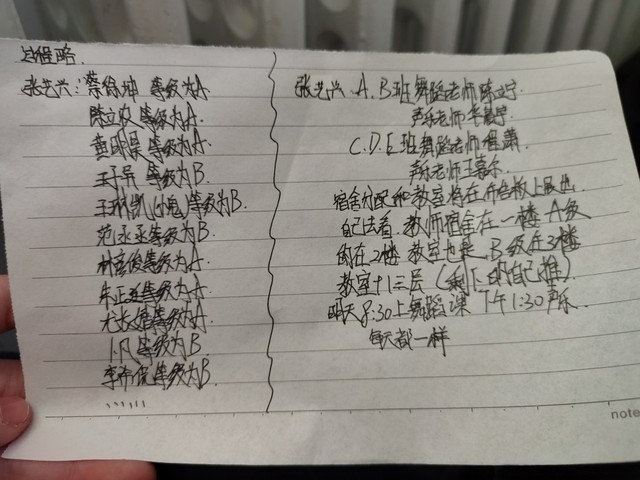 过程略.
张艺兴：蔡徐坤 等级为A.
陈立农 等级为A.
黄明昊 等级为A.
王子异 等级为B
王琳凯(小鬼)等级为B.
范丞丞等级为B.
林彦俊等级为A.
朱正廷等级为A.
尤长靖等级为A.
等级为B
李希侃等级为B.
......
张艺兴：A.B班舞蹈老师陈立宁.
声乐老师
C.D.E班舞蹈老师程潇.
声乐老师王嘉尔.
宿舍分配和教室将在布告板上展出.
自己去看. 教师宿舍在一楼 A级
的在2楼 教室也是. B级在3楼
教室十二层 (剩下的自己推)
明天8:30上舞蹈课 下午1:30声乐.
每天都一样
note